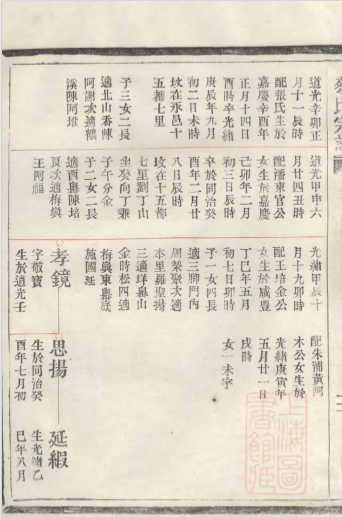 道光辛卯正
月十一辰時
配張氏生於
嘉慶辛酉年
正月十四日
酉時卒光緒
庚辰年九月
初二日未時
坟在永邑十
五都七里
子三女二長
適北山香陳
阿謝次適
溪陳阿堆
道光甲申六
月廿四丑時
配潘東官公
女生於嘉慶
己卯年二月
初三日辰時
卒於同治癸
酉年二月廿
八日辰時
坟在十五都
七里劉丁山
坐癸向丁兼
子午分金
子二女二長
適西輿陳培
良次適梅輿
王阿福
光緒甲辰十
月十九卯時
配王培金公
女生於咸豐
丁巳年五月
初七日卯時
子一女四長
適三腳門內
周榮聚次適
本里羅聖揚
三適垟輿山
金時松四適
梅輿東輿底
施國延
孝鏡
字敬寶
生於道光壬
配朱浦黃阿
木公女生於
光緒庚寅年
五月廿一日
戌時
女一未字
思揚
生於同治癸
酉年七月初
延緞
生光緒乙
巳年八月
上海圖書館藏